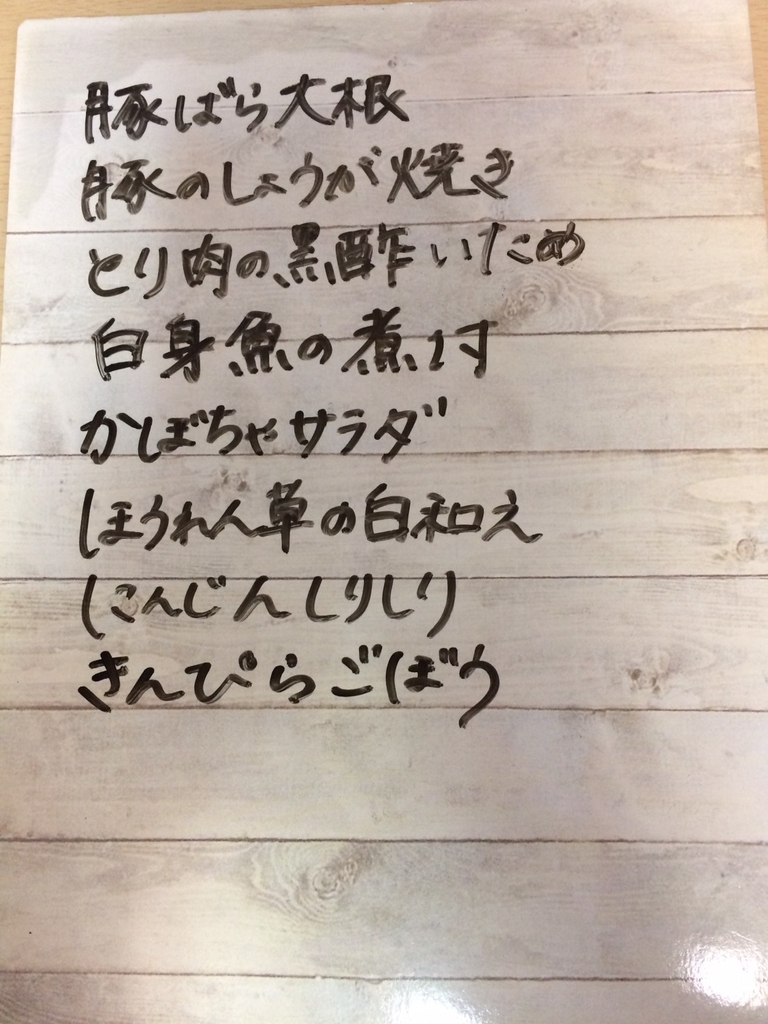 豚ばら大根
豚のしょうが焼き
とり肉の黒酢いため
白身魚の煮付
かぼちゃサラダ
ほうれん草の白和え
にんじんしりしり
きんぴらごぼう